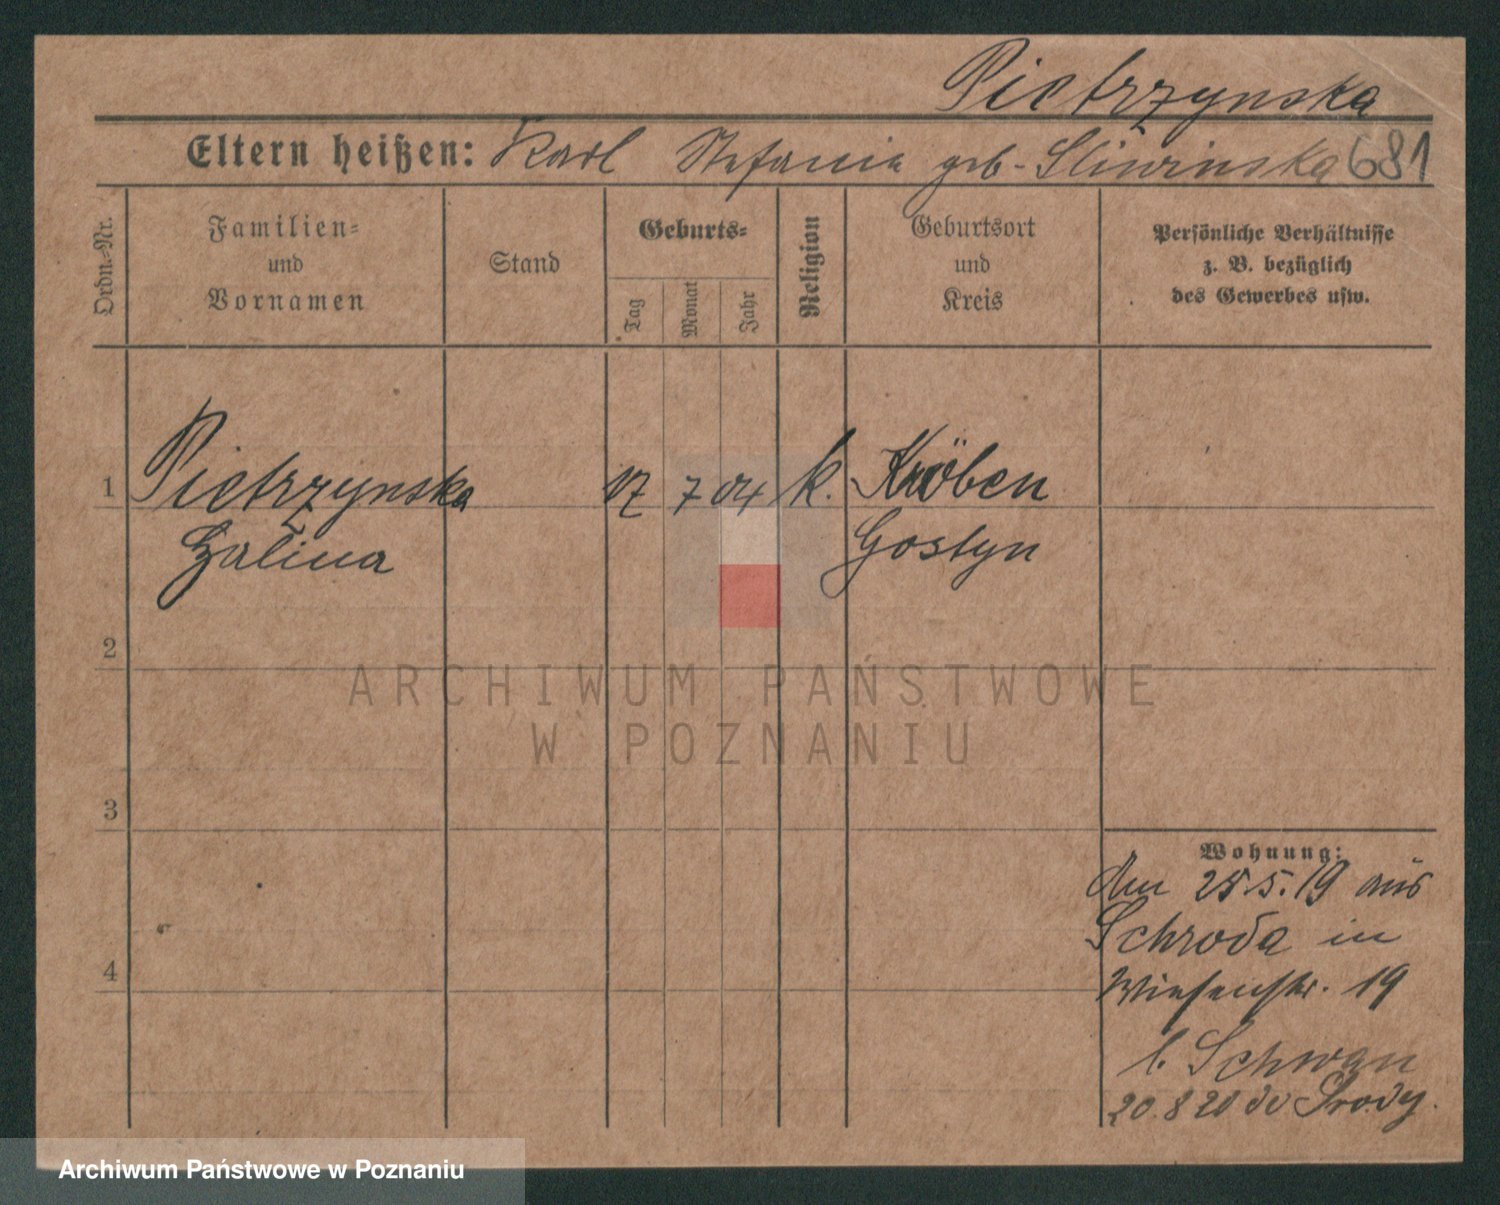 Pietrzynska
Eltern heißen: Karl Stefania geb. Sliwinska 681
Ordn.-Nr.
Familien-
und
Vornamen
Stand
Geburts-
Tag
Monat
Jahr
Religion
Geburtsort
und
Kreis
Persönliche Verhältnisse
z. B. bezüglich
des Gewerbes usw.
1 Pietrzynska 17 7 04 k. Kröben
Halina Gostyn
2
ARCHIWUM PAŃSTWOWE
W POZNANIU
3
Wohnung:
den 25.5.19 aus
Schroda in
4
Wiesenstr. 19
b. Schwan
20.8 20 do Środy.
Archiwum Państwowe w Poznaniu